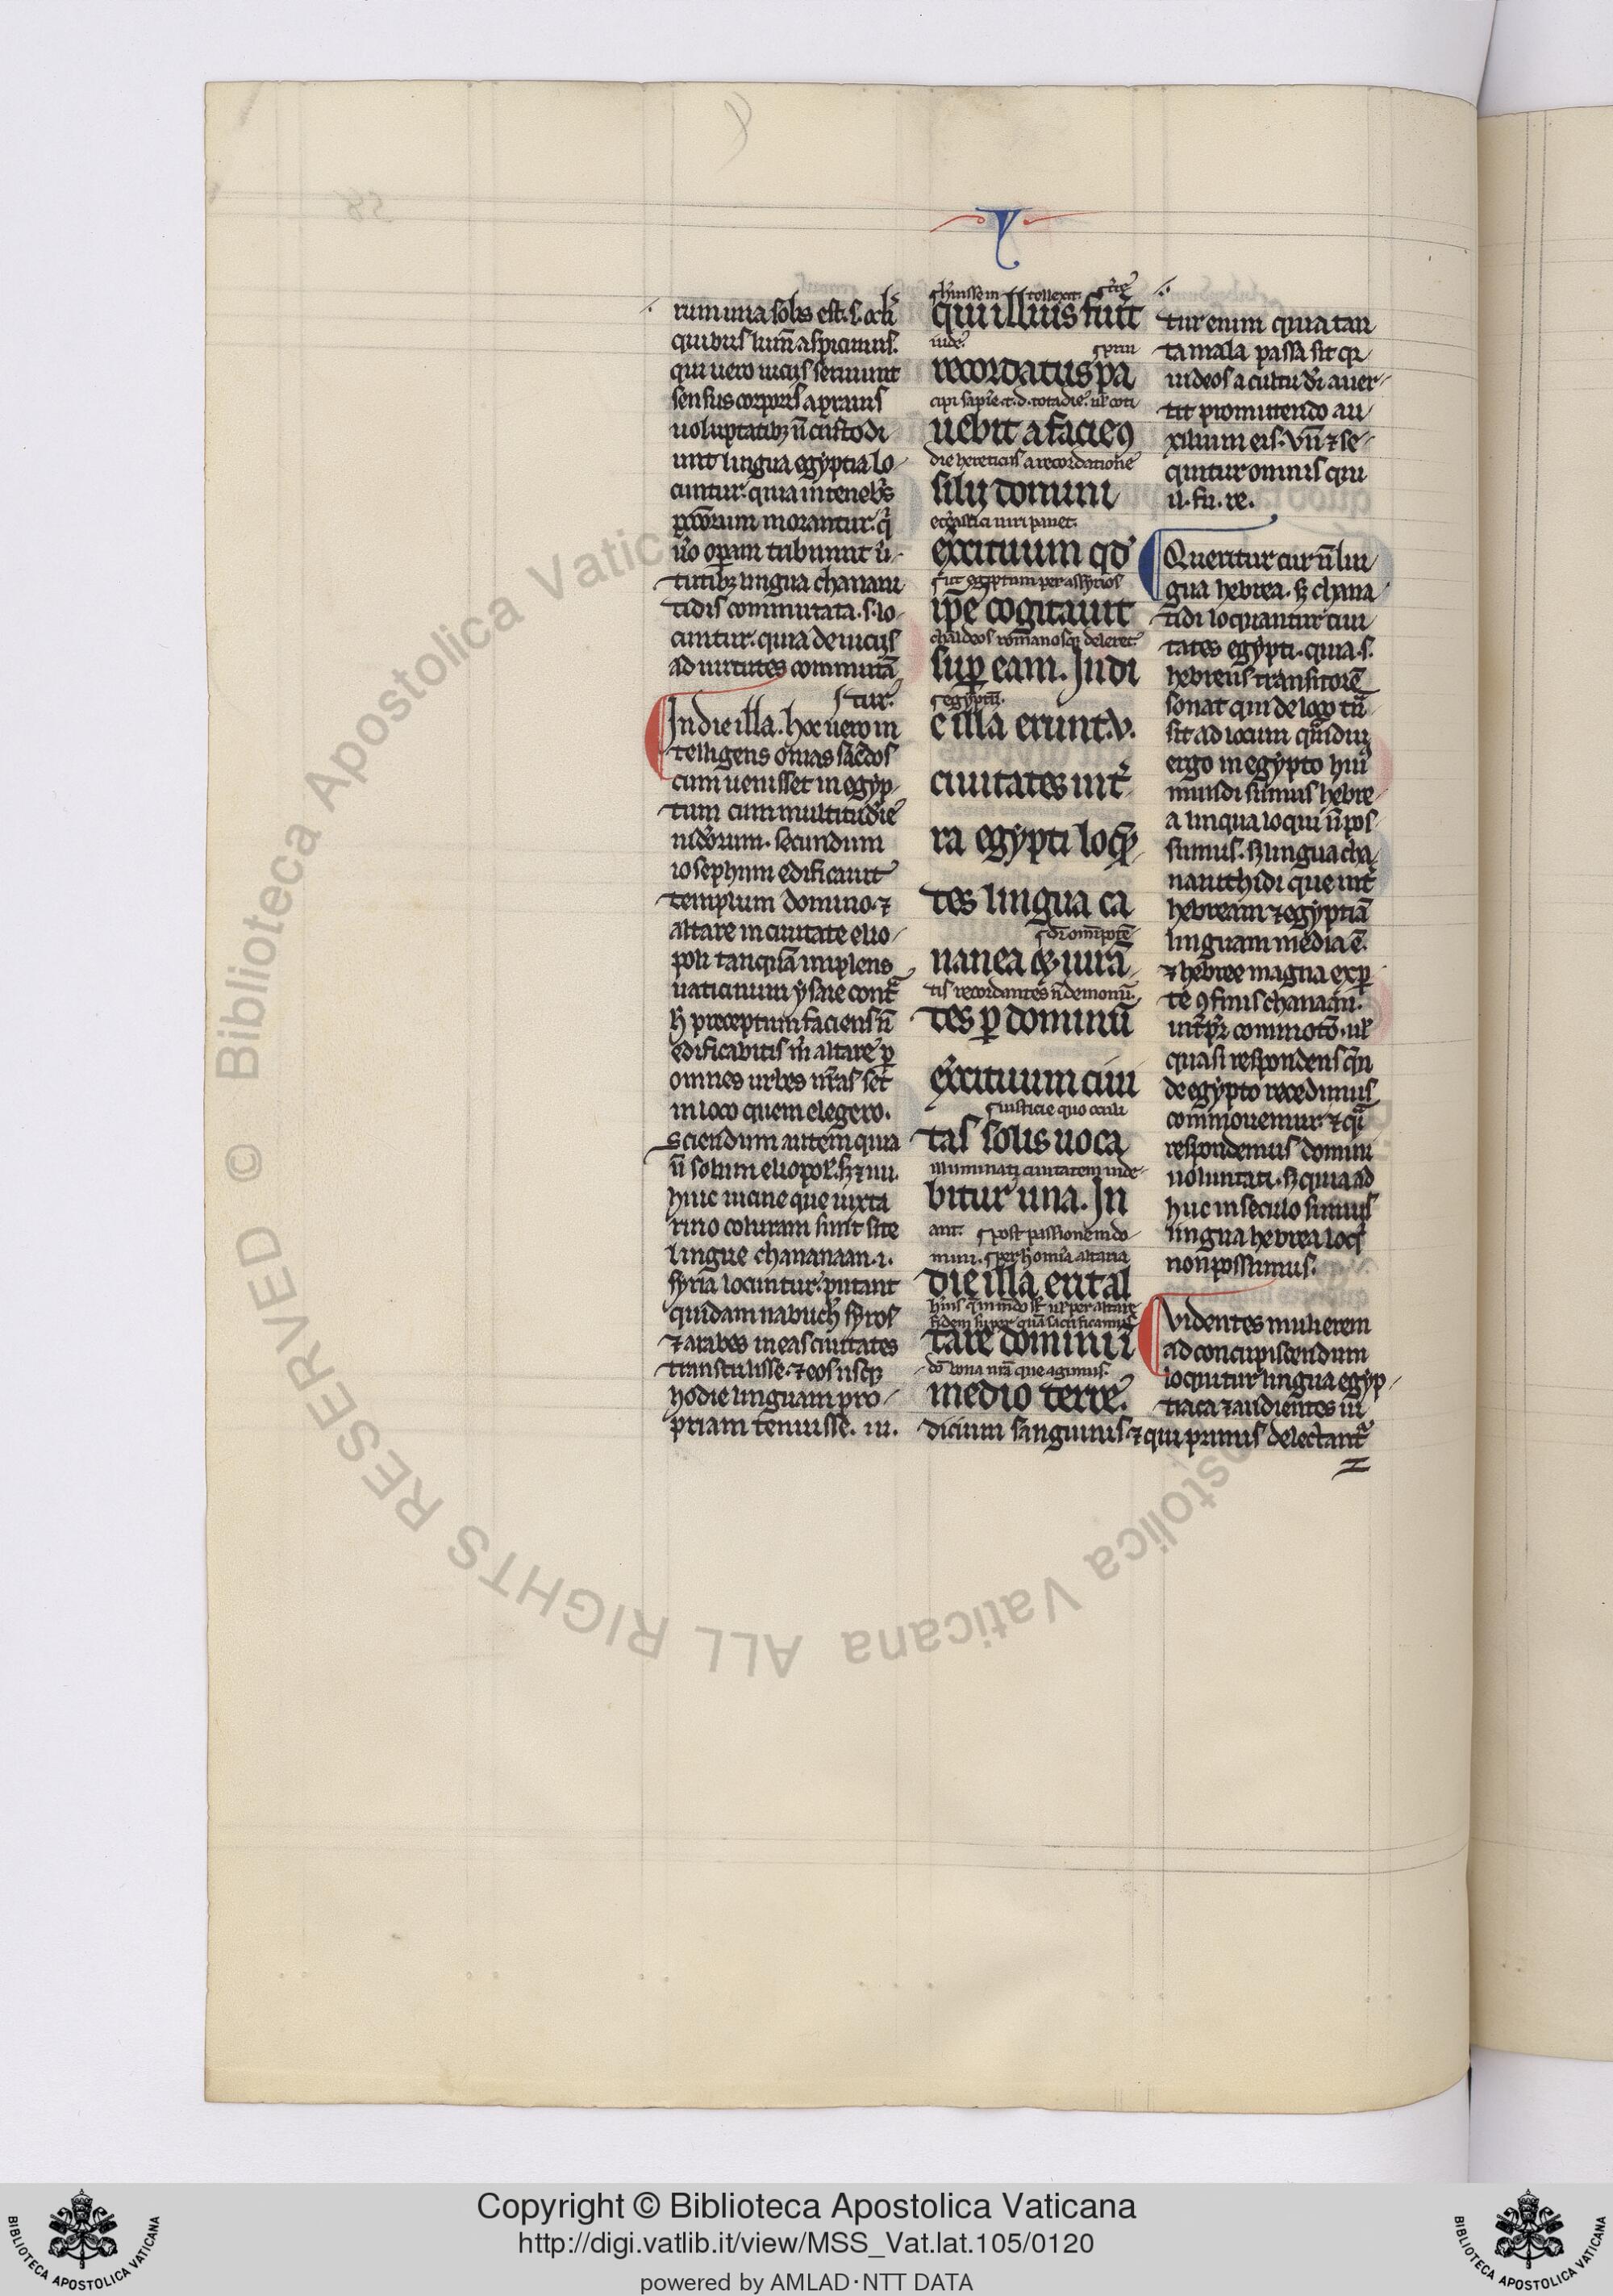 Y
rum una solis est. s. oc̄li
quibus lum̄ aspicimus.
qui uero uiciis seruiunt
sensus corporis a prauis
uoluptatibꝫ ñ custodi
unt lingua egyptia lo
cuntur. quia in teneb̄s
morantur. q̄
ũo operam tribuunt uir
tutibꝫ lingua chanani
tidis commutata .s. lo
cuntur. quia de uiciis
ad uirtutes commutā
tur.
In die illa. hoc uero in
telligens onias sac̄dos
cum uenisset in egyp
tum cum multitudīe
iudeorum. secundum
iosephum edificauit
templum domino. ⁊
altare in ciuitate elio
poli tanquā implens
uaticinium ysaie cont̄
h̄ preceptum faciens ñ
edificabitis m̄ altare p̱
omnes urbes ur̄as set
in loco quem elegero.
Sciendum autem quia
ñ solum eliopol. sꝫ ⁊ iiii.
huic uicine que iuxta
rino coluram sunt site
lingue chananaan .i.
syria locuntur. putant
quidam nabuch̄ syros
⁊ arabes in eas ciuitates
transtulisse. ⁊ eos usqꝫ
hodie linguam pro
priam tenuisse. iu.
qui illius fuit̄
recordatus pa
uebit a facie ꝯ
silii domini
exercituum qd̄
ipse cogitauit
sup̱ eam. In di
e illa erunt .v.
ciuitates in t̄
ra egypti loq̄
tes lingua ca
nanea qꝫ iurā
tes p̱ dominū
exercituum ciui
tas solis uoca
bitur una. In
die illa erit al
tare domini ī
medio terre.
iude
die hereticus a recordatione
ut egyptum per assyrios
chaldeos romanosqꝫ deleret
egyptū.
dī omīpotē
tis recordantes ñ demonū.
iusticie quo occuli
illuminatꝫ ciuitatem iude
ant. post passionem do
mini. per h̄ omīa altaria
fidem super quā sacrificamus
dō bona nr̄a que agimus.
tur enim quia tan
ta mala passa sit qꝫ
iudeos a cultu dī auer
tit promittendo au
xilium eis. Vñ ⁊ se
quitur omnis qui
il. fu. re.
Queritur cur ñ lin
gua hebrea. sꝫ chana
tidi loquantur ciui
tates egypti. quia .s.
hebreus transitorē
sonat qui de loco t̄n
sit ad locum quādiu
ergo in egypto hui᷒
mundi sumus hebre
a lingua loqui ñ pos
sumus. sꝫ lingua cha
nanithidi que int̄
hebream ⁊ egyptiā
linguam media ē.
⁊ hebree magna ex p̱
te ꝯfinis chanaan.
int̄pr̄ commotō. ul̄
quasi respondens qn̄
de egypto recedimus
commouemur. ⁊ q̄i
respondemus domini
uoluntati. sꝫ quia ad
huc in seculo sumus
lingua hebrea loq̄
non possumus.
Videntes mulierem
ad concupiscendum
loquitur lingua egyp
tiaca ⁊ audientes iu
dicium sanguinis ⁊ qui primus delectant̄
Copyright © Biblioteca Apostolica Vaticana
http://digi.vatlib.it/view/MSS_Vat.lat.105/0120
powered by AMLAD·NTT DATA
BIBLIOTECA APOSTOLICA VATICANA
BIBLIOTECA APOSTOLICA VATICANA
© Biblioteca Apostolica Vaticana ALL RIGHTS RESERVED